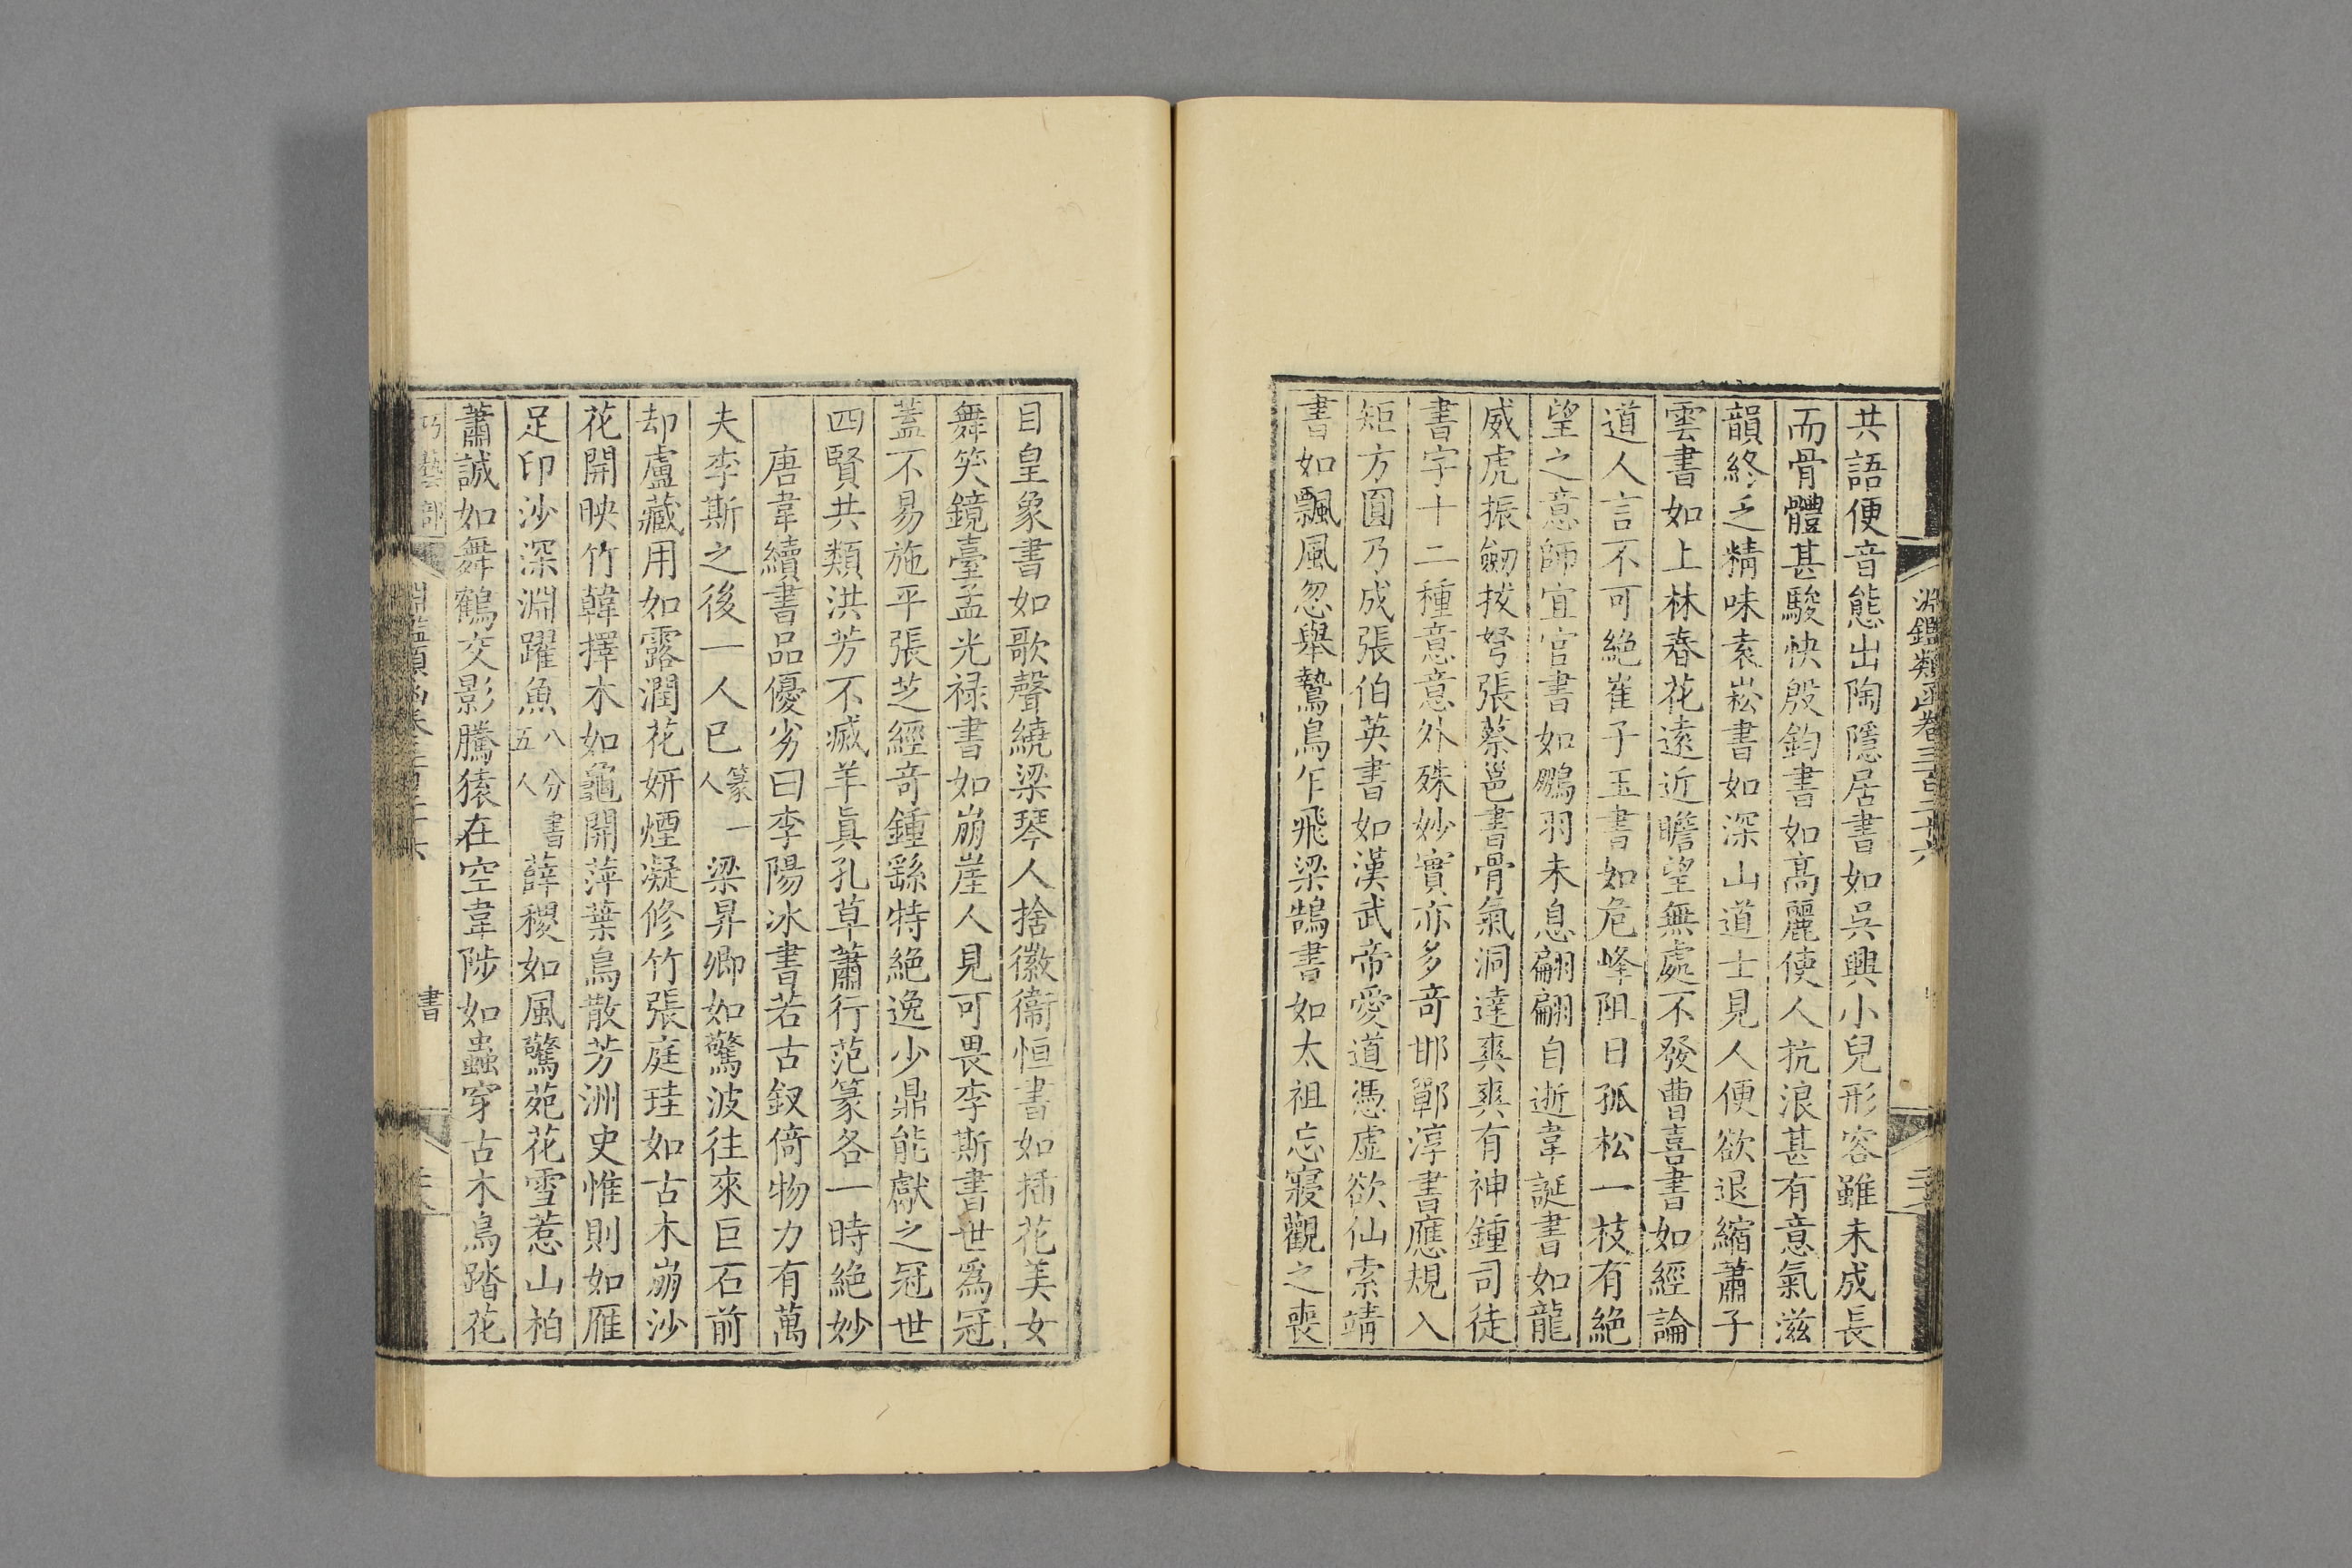 淵鑑類函卷三百二十六
共語便音態出陶隱居書如吳興小兒形容雖未成長
而骨體甚駿快殷鈞書如高麗使人抗浪甚有意氣滋
韻終乏精味袁崧書如深山道士見人便欲退縮蕭子
雲書如上林春花遠近瞻望無處不發曹喜書如經論
道人言不可絶崔子玉書如危峰阻日孤松一枝有絶
望之意師宜官書如鵬羽未息翩翩自逝韋誕書如龍
威虎振劒拔弩張蔡邕書骨氣洞達爽爽有神鍾司徒
書字十二種意意外殊妙實亦多奇邯鄲淳書應規入
矩方圓乃成張伯英書如漢武帝愛道憑虛欲仙索靖
書如飄風忽舉鷙鳥乍飛梁鵠書如太祖忘寢觀之喪
目皇象書如歌聲繞梁琴人捨徽衞恒書如插花美女
舞笑鏡臺孟光祿書如崩崖人見可畏李斯書世爲冠
蓋不易施平張芝經奇鍾繇特絶逸少鼎能獻之冠世
四賢共類洪芳不滅羊眞孔草蕭行范篆各一時絶妙
唐韋續書品優劣曰李陽冰書若古釵倚物力有萬
夫李斯之後一人已篆一人梁昇卿如驚波往來巨石前
却盧藏用如露潤花妍煙凝修竹張庭珪如古木崩沙
花開映竹韓擇木如龜開萍葉鳥散芳洲史惟則如雁
足印沙深淵躍魚八分書五人薛稷如風驚苑花雪惹山柏
蕭誠如舞鶴交影騰猿在空韋陟如蟲穿古木鳥踏花
巧藝部
書